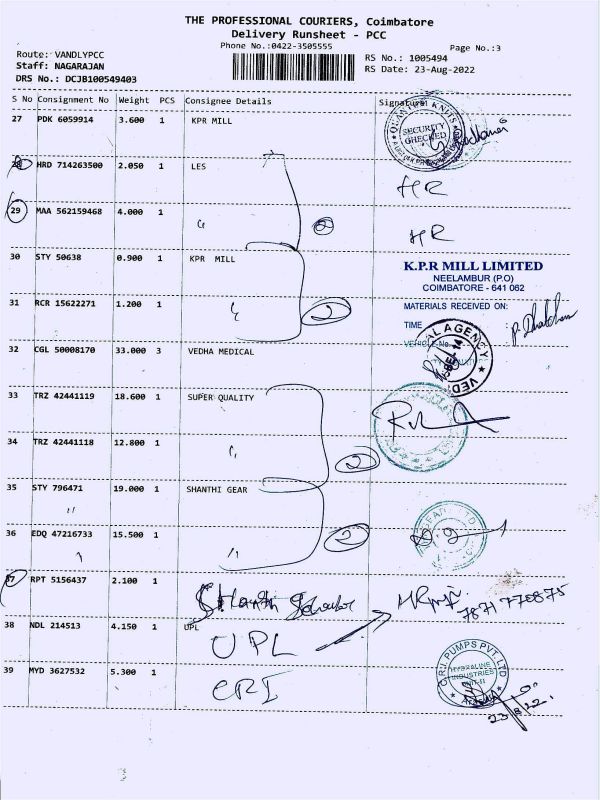 THE PROFESSIONAL COURIERS, Coimbatore
Delivery Runsheet - PCC
Phone No.:0422-3505555
Page No.:3
Route: VANDLYPCC
Staff: NAGARAJAN
DRS No.: DCJB100549403
RS No.: 1005494
RS Date: 23-Aug-2022
S No Consignment No Weight PCS Consignee Details Signature
27 PDK 6059914 3.600 1 KPR MILL
SECURITY CHECKED
28 HRD 714263500 2.050 1 LES
HR
29 MAA 562159468 4.000 1 2
HR
30 STY 50638 0.900 1 KPR MILL
K.P.R MILL LIMITED
NEELAMBUR (P.O)
COIMBATORE - 641 062
MATERIALS RECEIVED ON:
TIME
31 RCR 15622271 1.200 1 2
VEHICLE No.
32 CGL 50008170 33.000 3 VEDHA MEDICAL
AL AGENCY ★ VED
33 TRZ 42441119 18.600 1 SUPER QUALITY
34 TRZ 42441118 12.800 1 2
35 STY 796471 19.000 1 SHANTHI GEAR
36 EDQ 47216733 15.500 1 2
37 RPT 5156437 2.100 1 Shanthi
7871 770875
38 NDL 214513 4.150 1 UPL
UPL
39 MYD 3627532 5.300 1 CRI
C.R.I. PUMPS PVT. LTD
HYDRALINE
INDUSTRIES
UNIT-II
23/8/22